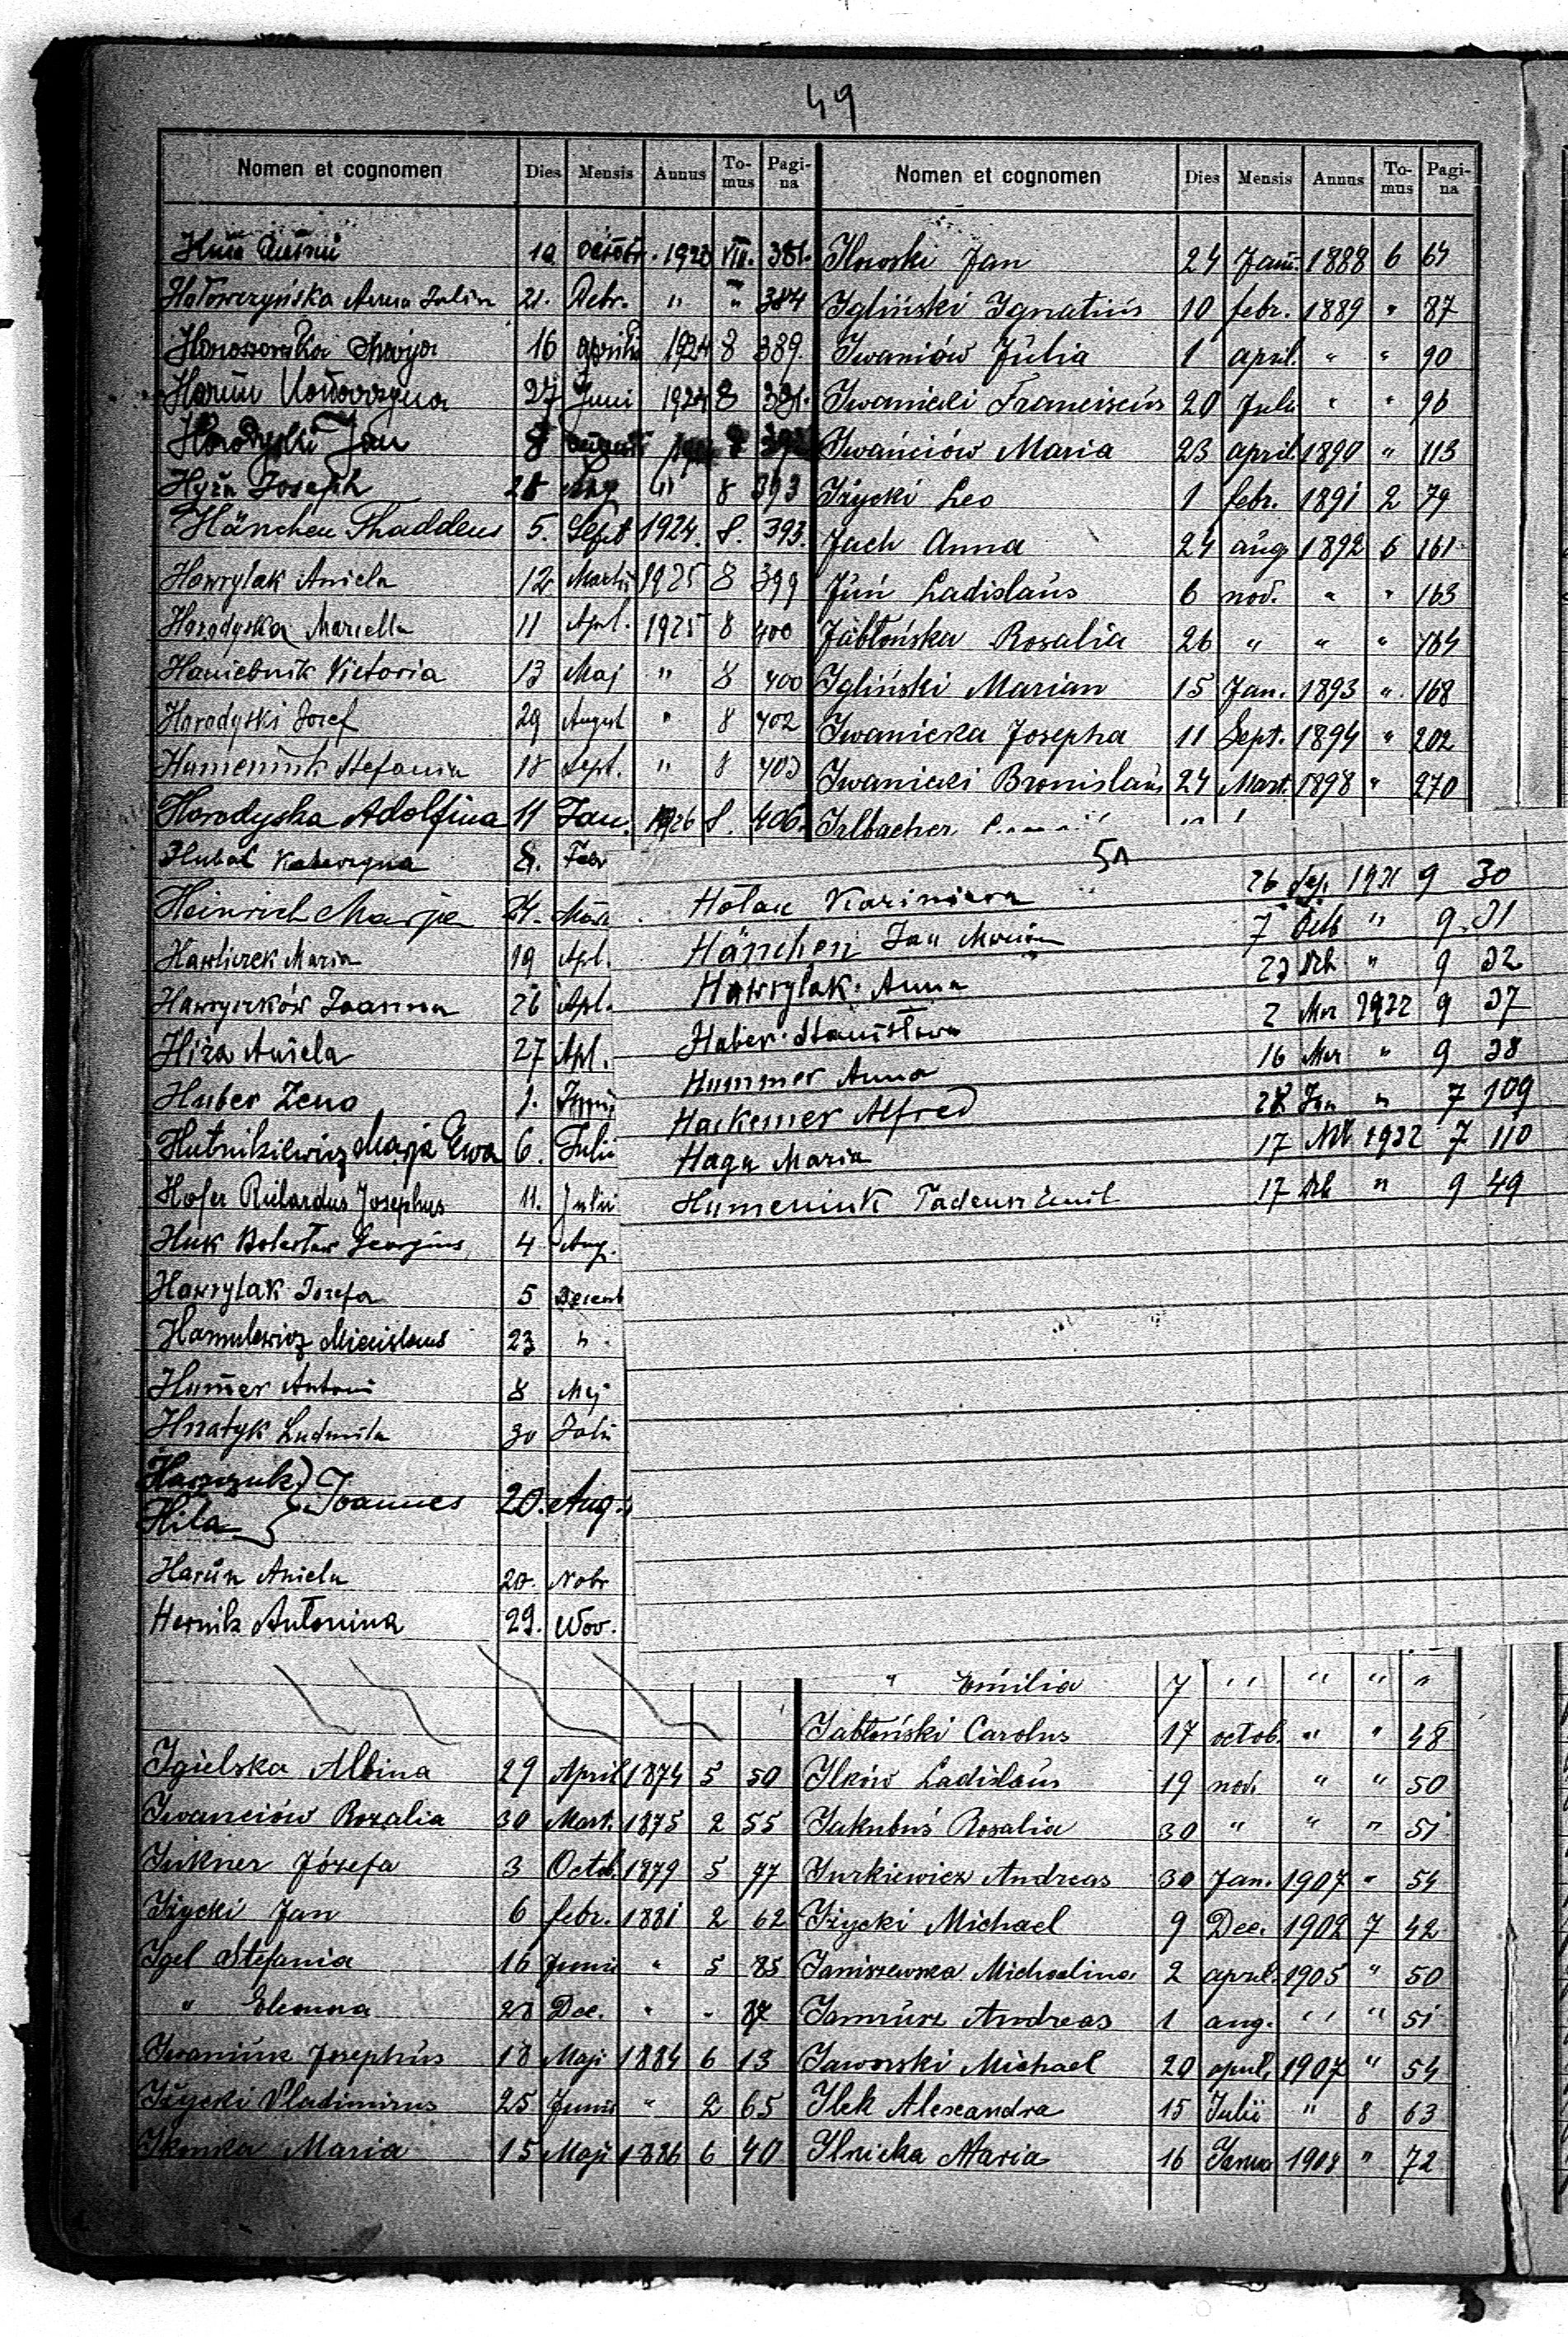 49
Nomen et cognomen Dies Mensis Annus To-mus Pagi-na
10 octobr. 1923 VIII. 381.
Hołowczyńska Anna Julia 21. Febr. " " 384
Maryja 16 aprilis 1924 8 389.
Harun Katarzyna 27 Juni 1924 8 391.
Horodyski Jan 8
Hyża Joseph 28 Aug " 8 393
Hänchen Thaddeus 5. Sept 1924. 8. 393.
Hawrylak Aniela 12 Martii 1925 8 399
Horodyska Mariella 11 Apl. 1925 8 400
Haniebnik Victoria 13 Maj " 8 400
Horodyski Josef 29 August " 8 402
Humeniuk Stefania 18 Sept. " 8 403
Horodyska Adolfina 11 Jan. 1926 8. 406.
Hubal Katarzyna 8. Febr
Heinrich Marja 24. Mar
Hawliczek Maria 19 Apl.
Hawryczków Joanna 26 Apl.
Hiża Aniela 27 Apl.
Huber Zeno 1. Junii
Hutnikiewicz Marja Ewa 6. Julii
Hofer Richardus Josephus 11. Julii
Huk Bolesław Georgius 4 Aug.
Hawrylak Jozefa 5 Decemb
Hamulewicz Miecislaus 23 "
Humer Antoni 8 Maj
Hnatyk Ludmila 30 Julii
Harszuk } Joannes 20. Aug.
Hila
Harun Aniela 20. Nobr
Hernik Antonina 29. Nov.
Igielska Albina 29 April 1874 5 50
Iwanciów Rozalia 30 Mart. 1875 2 55
Iükner Józefa 3 Octob. 1879 5 77
Iżycki Jan 6 febr. 1881 2 62
Igel Stefania 16 Junii " 5 85
" Eleonora 28 Dec. " " 87
Iwaniuk Josephus 18 Maji 1884 6 13
Iżycki Vladimirus 25 Junii " 2 65
Maria 15 Maji 1886 6 40
Nomen et cognomen Dies Mensis Annus To-mus Pagi-na
Ilowski Jan 24 Jan. 1888 6 64
Igliński Ignatius 10 febr. 1889 " 87
Iwaniów Julia 1 april. " " 90
Iwanicki Franciscus 20 Julii " " 96
Iwańciów Maria 23 april 1890 " 113
Iżycki Leo 1 febr. 1891 2 79
Juch Anna 24 aug 1892 6 161
Jun Ladislaus 6 nov. " " 163
Jabłońska Rosalia 26 " " " 164
Igliński Marian 15 Jan. 1893 " 168
Iwanicka Josepha 11 Sept. 1894 " 202
Iwanicki Bronislaus 24 Mart. 1898 " 270
Irlbacher
51
Holak Kazimiera 26 Sep. 1931 9 30
Hänchen Jan Marian 7 Octb " 9. 31
Hawrylak Anna 23 Dcb " 9 32
Haber Stanisława 2 Mar 1932 9 37
Hummer Anna 16 Mar " 9 38
Hackemer Alfred 28 Jan " 7 109
Haga Maria 17 1932 7 110
Humeniuk Tadeusz Emil 17 Dcb " 9 49
" Emilia 7 " " " "
Jabłoński Carolus 17 octob. " " 48
Ilków Ladislaus 19 nov. " " 50
Jakubuś Rosalia 30 " " " 51
Jurkiewicz Andreas 30 Jan. 1907 " 54
Iżycki Michael 9 Dec. 1902 7 42
Janiszewska Michaelina 2 april. 1905 " 50
Janrusz Andreas 1 aug. " " 51
Jaworski Michael 20 april. 1907 " 54
Ilek Alexandra 15 Julii " 8 63
Ilnicka Maria 16 Janua 1908 " 72